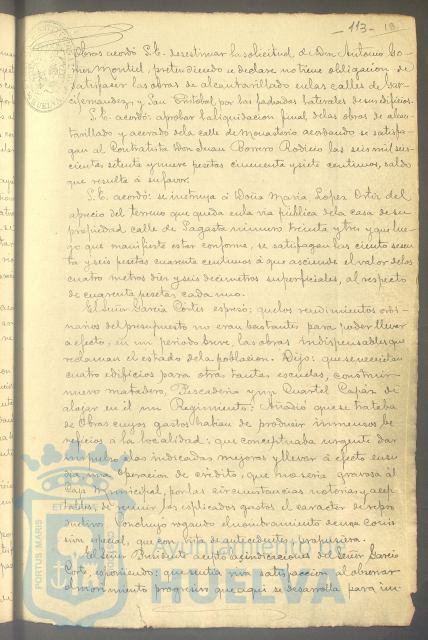 -113-
Obras acordó S.E. desestimar la solicitud de Don Antonio Go-
mez Montiel, pretendiendo se declare no tiene obligacion de
satisfacer las obras de alcantarillado en las calles de Garci-
fernandez y San Cristobal, por las fachadas laterales de sus edificios.
S.E. acordó: aprobar la liquidacion final de las obras de alcan-
tarillado y acerado de la calle de Monasterio acordando se satisfa-
gan al Contratista Don Juan Borrero Rodicio las seis mil seis-
cientas setenta y nueve pesetas cincuenta y siete centimos, saldo
que resulta á su favor.
S.E. acordó: se instruya á Doña Maria Lopez Ortiz del
aprecio del terreno que queda en la via pública de la casa de su
propiedad calle de Sagasta número treinta y tres y que lue-
go que manifieste estar conforme, se satisfagan las ciento sesen-
ta y seis pesetas cuarenta centimos á que asciende el valor de los
cuatro metros diez y seis decimetros superficiales, al respecto
de cuarenta pesetas cada uno.
El Señor Garcia Cortés espresó: que los rendimientos ordi-
narios del presupuesto no eran bastantes para poder llevar
á efecto, en un periodo breve, las obras indispensables que
reclaman el estado de la poblacion. Dijo: que se necesitan
cuatro edificios para otras tantas escuelas, construir
nuevo matadero, Pescaderia y un Cuartel capáz de
alojar en él un Regimiento: Añadió que se trataba
de Obras cuyos gastos habian de producir inmensos be-
neficios á la localidad: que conceptuaba urgente dar
impulso á las indicadas mejoras y llevar á efecto en su
dia una Operacion de crédito, que no seria gravosa al
Caja Municipal, por las circunstancias notorias y acep-
tables, de reunir los esplicados gastos el caracter de repro-
ductivos. Concluyó rogando el nombramiento de una Comi-
sion especial, que con vista de antecedentes, propusiera.
El Señor Presidente aceptó las indicaciones del Señor Garcia
Cortés, esponiendo: que sentia viva satisfaccion al observar
el movimiento progresivo que aqui se desarrolla para im-
PORTUS MARIS
Ayuntamiento de
HUELVA